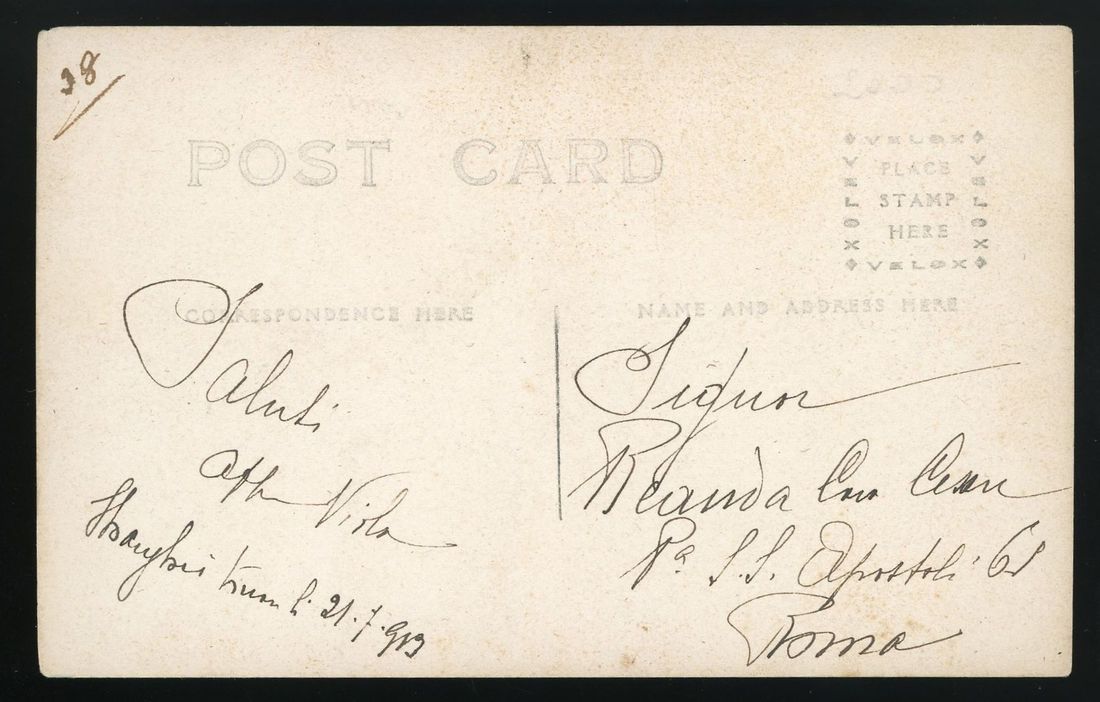 38
POST CARD
VELOX
VELOX PLACE VELOX
STAMP
HERE
VELOX
CORRESPONDENCE HERE
NAME AND ADDRESS HERE
Saluti
Viola
Shanghai li 21.7.913
Signor
Cav
Pa S.S. Apostoli 61
Roma